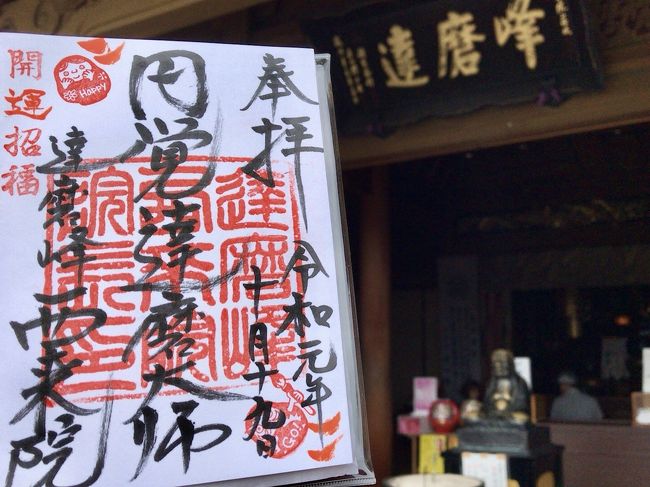 奉拝
令和元年
十月十九日
円覚達磨大師
達磨峰西来院
開運招福
Happy
GO!
達磨峰